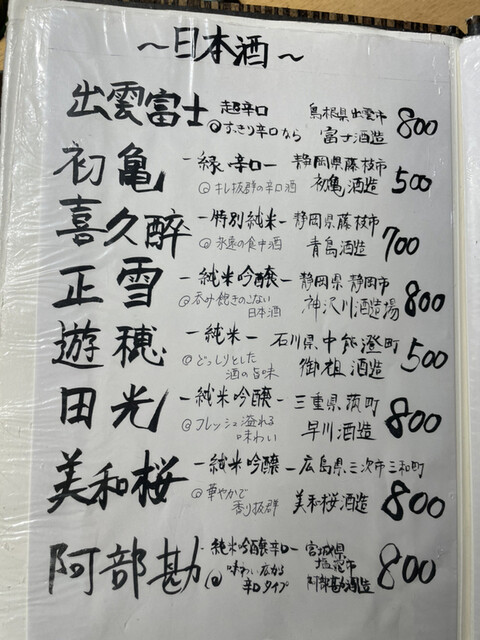 〜日本酒〜
出雲富士 超辛口 島根県出雲市 800
@すっきり辛口なら 富士酒造
初亀 -緑 辛口- 静岡県藤枝市 500
@キレ抜群の辛口酒 初亀酒造
喜久醉 -特別純米- 静岡県藤枝市 700
@永遠の食中酒 青島酒造
正雪 -純米吟醸- 静岡県静岡市 800
@呑み飽きのこない 神沢川酒造場
日本酒
遊穂 -純米- 石川県中能澄町 500
@どっしりとした 御祖酒造
酒の旨味
田光 -純米吟醸- 三重県 町 800
@フレッシュ溢れる 早川酒造
味わい
美和桜 -純米吟醸- 広島県三次市三和町 800
@華やかで 美和桜酒造
香り抜群
阿部勘 -純米吟醸辛口- 宮城県 800
@味わい広がる 塩竈市
辛口タイプ 阿部勘酒造